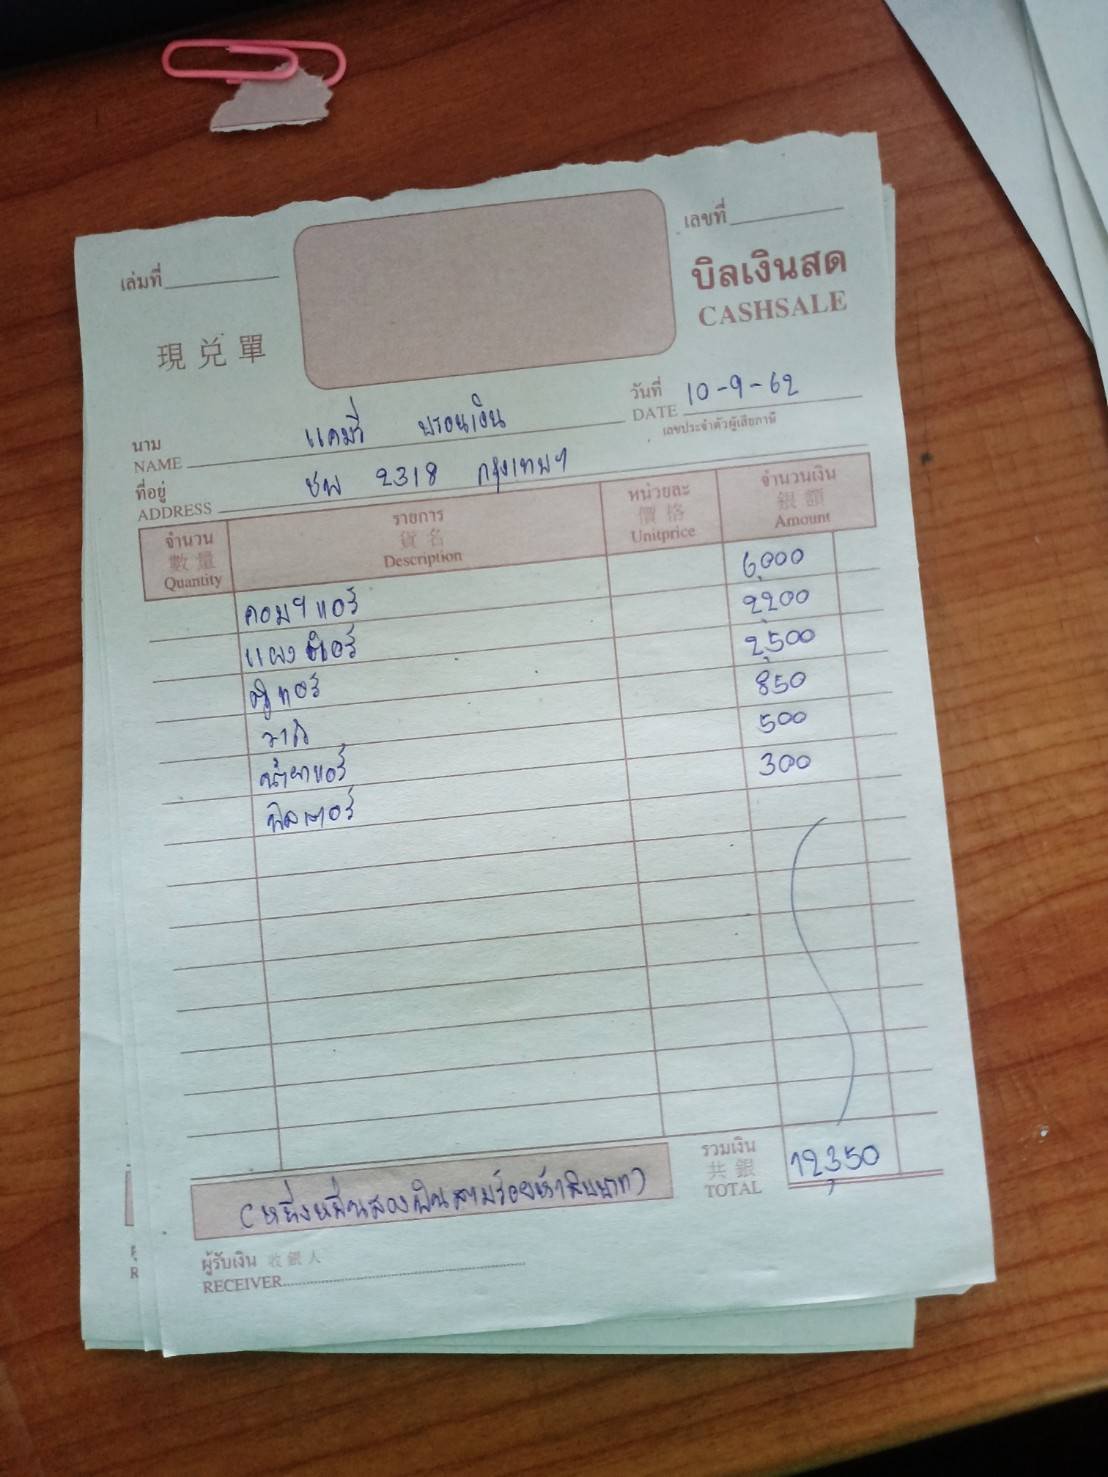 เล่มที่
เลขที่
บิลเงินสด
CASHSALE
現兌單
วันที่
DATE 10-9-62
เลขประจำตัวผู้เสียภาษี
นาม
NAME แคมรี่ พรอนเงิน
ที่อยู่
ADDRESS ชพ 2318 กรุงเทพฯ
จำนวน รายการ หน่วยละ จำนวนเงิน
數量 貨名 價格 銀額
Quantity Description Unitprice Amount
คอมฯแอร์ 6,000
แผงแอร์ 2,200
ตู้แอร์ 2,500
วาล์ว 850
น้ำยาแอร์ 500
ฟิลเตอร์ 300
รวมเงิน
共銀
TOTAL 12,350
(หนึ่งหมื่นสองพันสามร้อยห้าสิบบาท)
ผู้รับเงิน 收銀人
RECEIVER
R